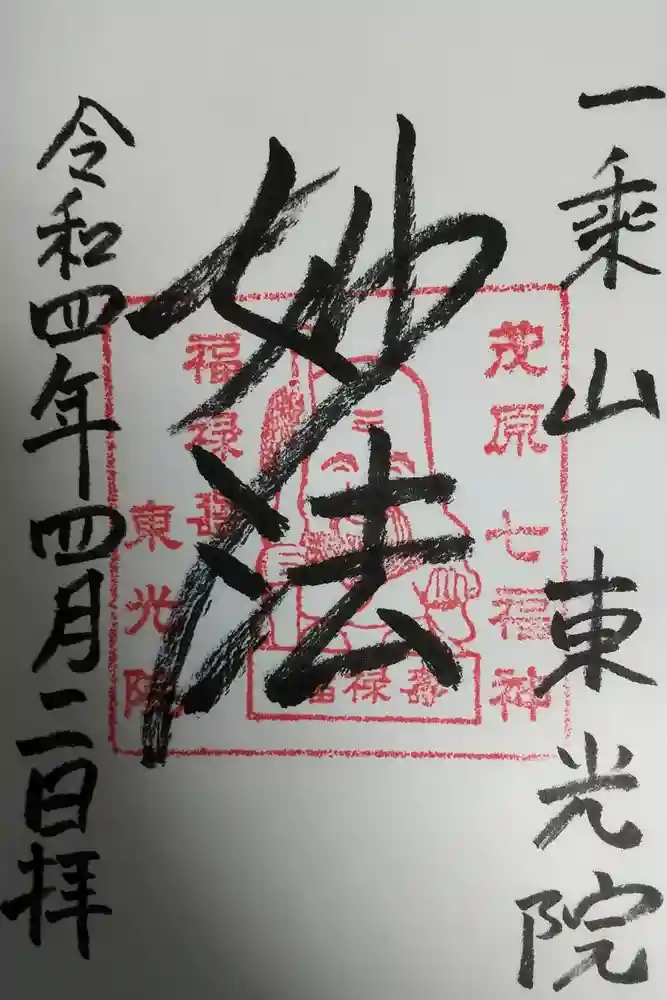 一乗山東光院
妙法
令和四年四月二日拝
茂原七福神
福禄寿
東光院
福禄壽